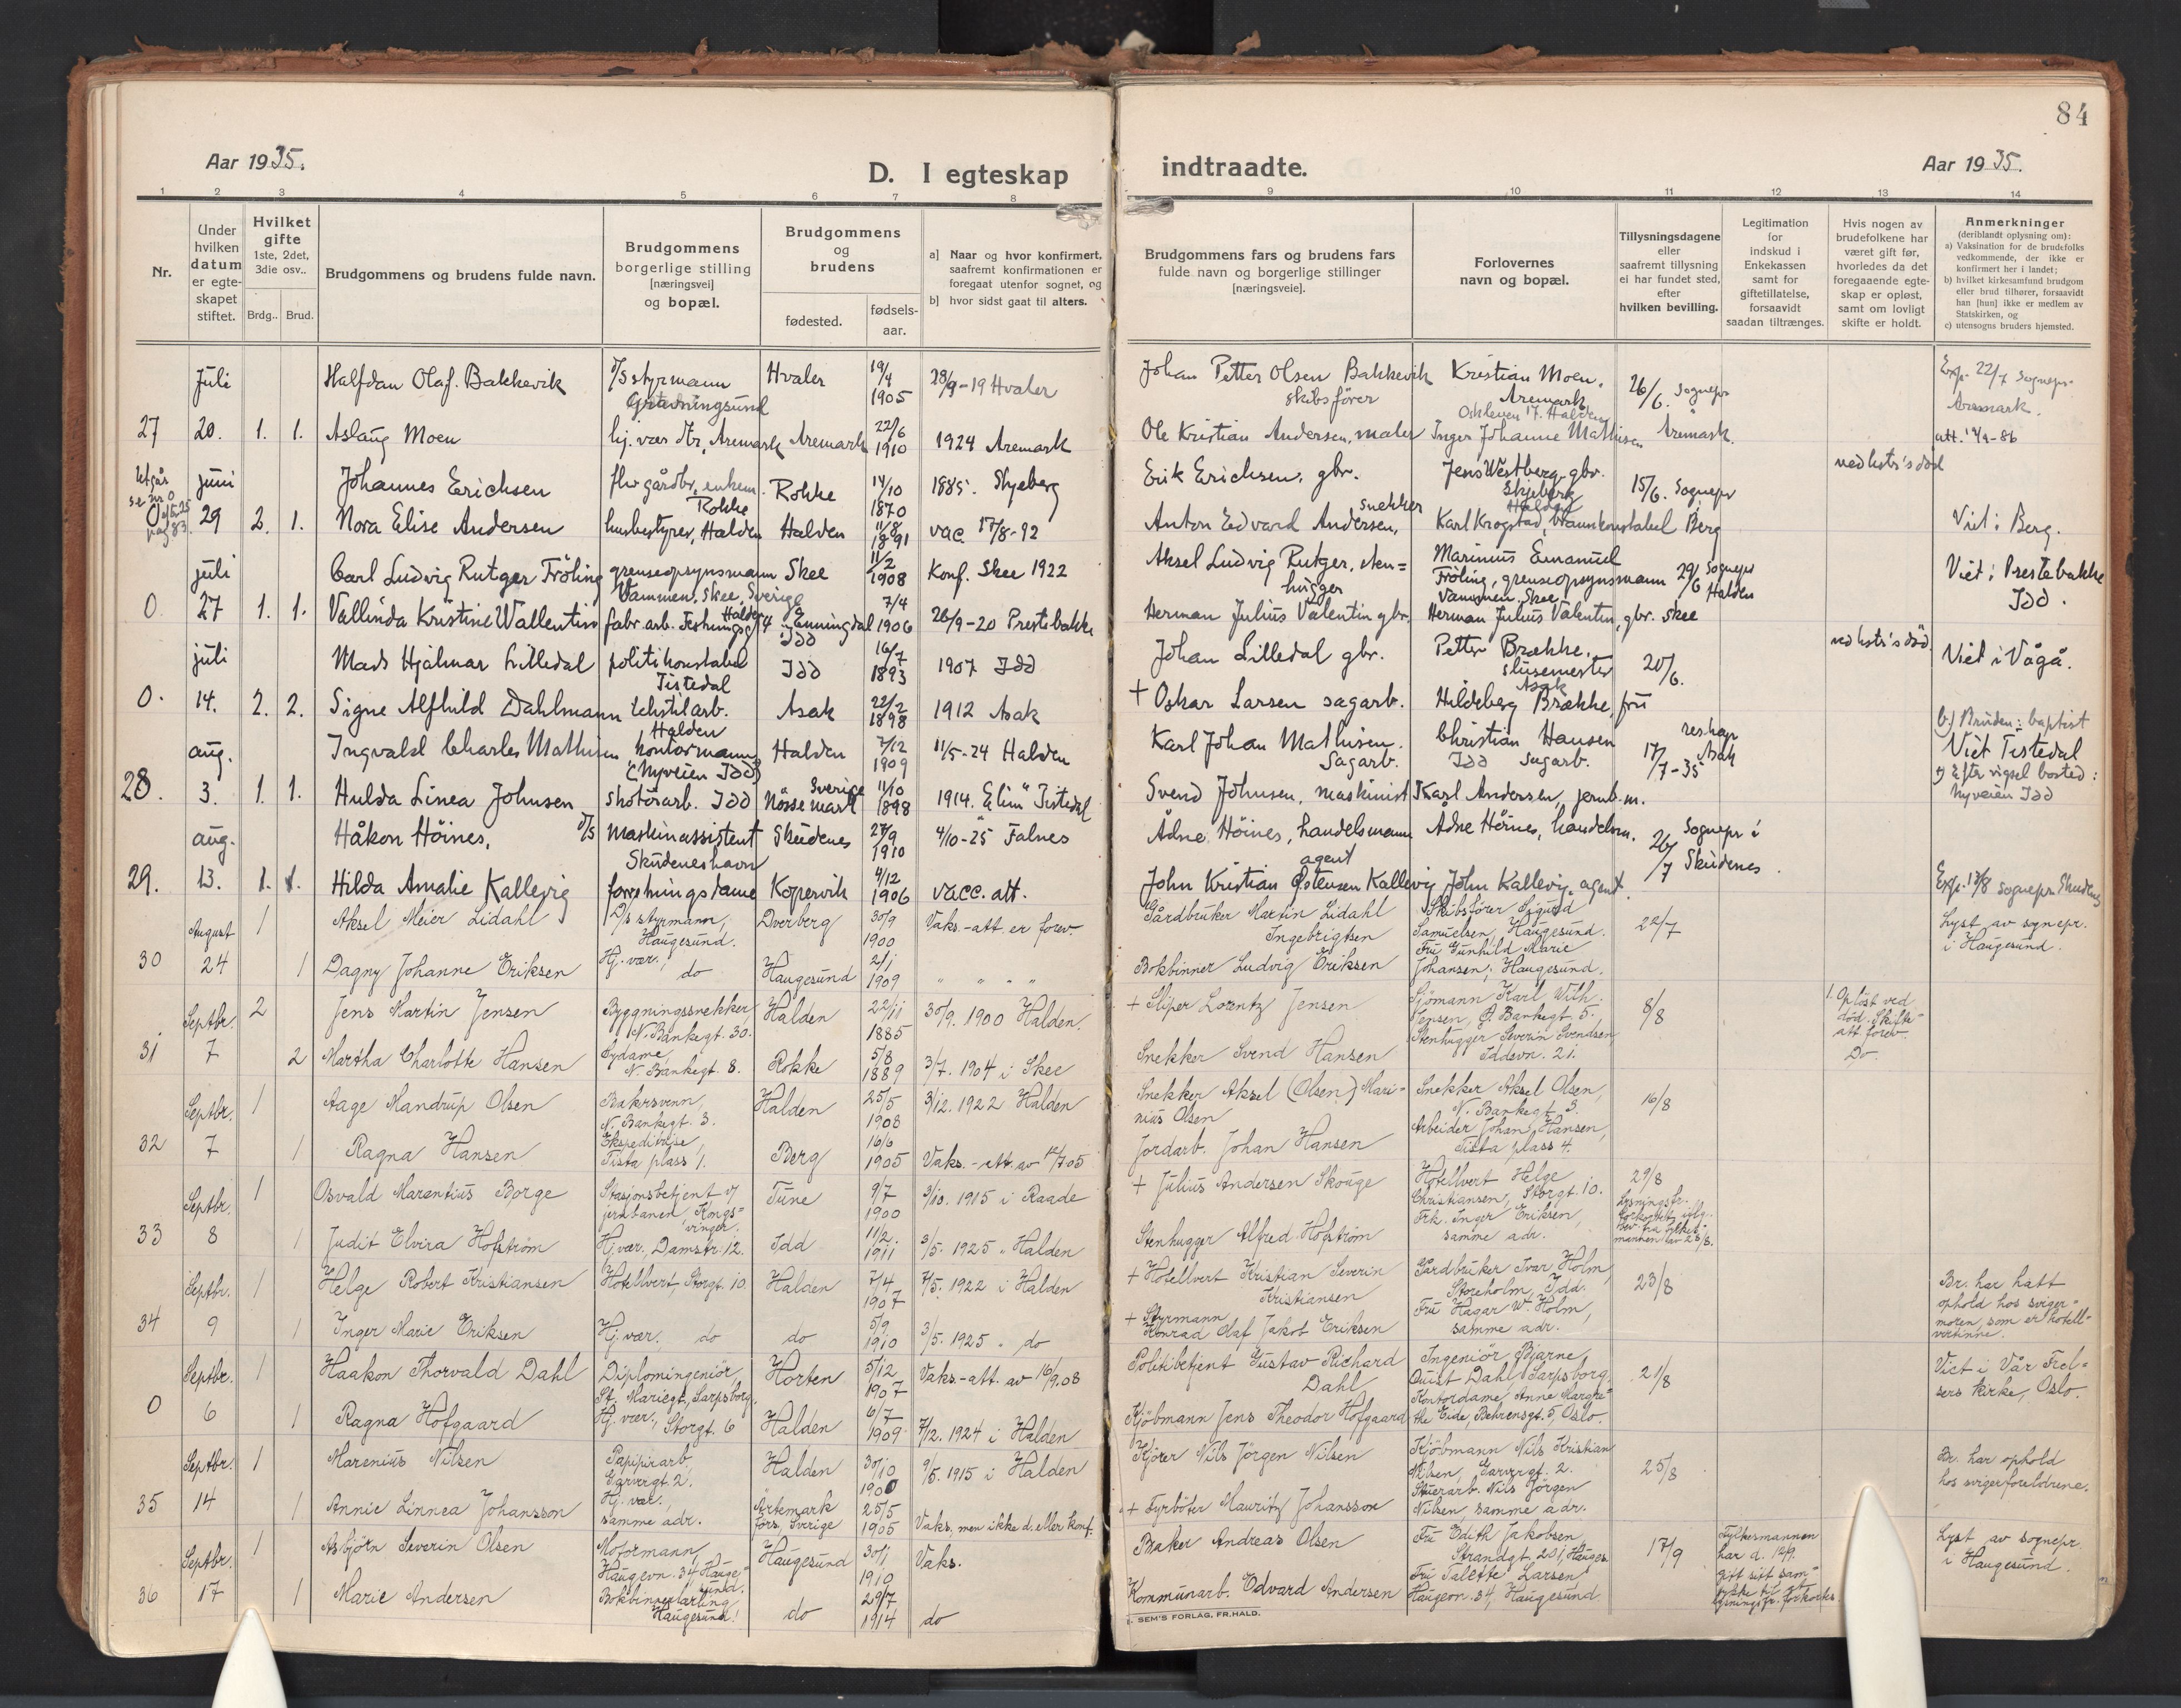 84
Aar 1935.
D. I egteskap indtraadte.
Aar 1935.
1 2 3 4 5 6 7 8 9 10 11 12 13 14
Nr.
Under hvilken datum er egte-skapet stiftet.
Hvilket gifte 1ste, 2det, 3die osv..
Brdg.. Brud.
Brudgommens og brudens fulde navn.
Brudgommens borgerlige stilling [næringsvei] og bopæl.
Brudgommens og brudens
fødested.
fødsels-aar.
a] Naar og hvor konfirmert, saafremt konfirmationen er foregaat utenfor sognet, og
b] hvor sidst gaat til alters.
Brudgommens fars og brudens fars fulde navn og borgerlige stillinger [næringsveie].
Forlovernes navn og bopæl.
Tillysningsdagene eller saafremt tillysning ei har fundet sted, efter hvilken bevilling.
Legitimation for indskud i Enkekassen samt for giftetillatelse, forsaavidt saadan tiltrænges.
Hvis nogen av brudefolkene har været gift før, hvorledes da det foregaaende egte-skap er opløst, samt om lovligt skifte er holdt.
Anmerkninger
(deriblandt oplysning om):
a) Vaksination for de brudefolks vedkommende, der ikke er konfirmert her i landet;
b) hvilket kirkesamfund brudgom eller brud tilhører, forsaavidt han [hun] ikke er medlem av Statskirken, og
c) utensogns bruders hjemsted.
juli Halfdan Olaf. Bakkevik D/S styrmann Hvaler 19/4 1905 28/9-19 Hvaler Johan Petter Olsen Bakkevik skibsfører Kristian Moen. Aremark 26/6. Sognepr Exp. 22/7 Sognepr. Aremark.
27 20. 1. 1. Aslaug Moen hj. vær dtr, Aremark Aremark 22/6 1910 1924 Aremark Ole Kristian Andersen, maler Inger Johanne Mathisen Aremark.
Utgår se nr 0
juni Johannes Erichsen flv gårdbr, enkem. Rokke Rokke 14/10 1870 1885. Skjeberg Erik Erichsen, gbr. Jens Westberg, gbr. Skjeberg 15/6. Sognepr i ved hstr's død
29 2. 1. Nora Elise Andersen husbestyrer, Halden Halden 11/8 1891 vac. 17/8-92 Anton Edvard Andersen, snekker Karl Krogstad, Halden Berg Viet i Berg.
juli Carl Ludvig Rutger Fröling grenseopsynsmann Vammen, Skee, Sverige Skee 11/2 1908 Konf. Skee 1922 Aksel Ludvig Rutger, sten=hugger Marinius Emanuel Fröling, grenseopsynsmann Vammen. Skee 29/6 Sognepr Halden Viet i Prestebakke Idd.
0. 27 1. 1. Vallinda Kristine Wallentin fabr. arb. Halden Enningdal Idd 7/4 1906 26/9-20 Prestebakke Herman Julius Valentin gbr. Herman Julius Valentin, gbr. Skee
juli Mads Hjalmar Lilledal politikonstabel Tistedal Idd 16/7 1893 1907 Idd Johan Lilledal gbr. Petter Brække. slusemester Asak 20/6. ved hstr's død Viet i Vågå.
0. 14. 2. 2. Signe Alfhild Dahlmann tekstilarb. Halden Asak 22/2 1898 1912 Asak + Oskar Larsen sagarb. Hildeberg Brække, fru
aug. Ingvald Charles Mathisen kontormann (Nyveien Idd) Halden 7/12 1909 11/5-24 Halden Karl Johan Mathisen. Sagarb. Christian Hansen Idd Sagarb. 17/7-35 reskap Asak b.) Bruden: baptist Viet Tistedal
28. 3. 1. 1. Hulda Linea Johnsen skotöiarb. Idd Nössemark Sverige 11/10 1898 1914. "Elim" Tistedal Svend Johnsen, maskinist Karl Andersen, jernb.m. Efter vigsel bosted: Nyveien Idd
aug. Håkon Höines, D/S maskinassistent Skudeneshavn Skudenes 27/9 1910 4/10-25 Falnes Ådne Höines, handelsmann Ådne Höines, handelsm. 26/7 Sognepr i Skudenes.
29. 13. 1. 1. Hilda Amalie Kallevig forretningsdame Kopervik 4/12 1906 vacc. att. John Kristian Østensen Kallevig agent John Kallevig, agent. Exp. 13/8 sognepr Skudenes
August 1 Aksel Meier Lidahl D/s styrmann, Haugesund. Dverberg 30/9 1900 Vaks.-att. er forev. Gårdbruker Martin Lidahl Ingebrigtsen Skibsfører Sigurd Samuelsen, Haugesund. 22/7 Lyst av sognepr. i Haugesund.
30 24 1 Dagny Johanne Eriksen Hj. vær., do Haugesund 2/1 1909 " " " " Bokbinner Ludvig Eriksen Fru Gunhild Marie Johansen, Haugesund.
Septbr. 2 Jens Martin Jensen Bygningssnekker, N. Bankegt. 30. Halden 22/11 1885 30/9. 1900 Halden. + Sliper Lorentz Jensen Sjömann Karl Wilh. Jensen, Ø. Bankegt. 5. 8/8 1. Opløst ved död. Skifte-att. forev.
31 7 2 Martha Charlotte Hansen Sydame, N. Bankegt. 8. Rokke 5/8 1889 3/7. 1904 i Skee Snekker Svend Hansen Stenhugger Severin Svendsen Iddevn. 21. Do.
Septbr. 1 Aage Mandrup Olsen Bakersvenn, N. Bankegt. 3. Halden 25/5 1908 3/12. 1922 Halden Snekker Aksel (Olsen) Mari=nius Olsen Snekker Aksel Olsen, N. Bankegt. 3. 16/8
32 7 1 Ragna Hansen Ekspeditrise, Tista plass 1. Berg 16/6 1905 Vaks.-att. av 12/7.05 Jordarb. Johan Hansen Arbeider Johan Hansen, Tista plass 4.
Septbr. 1 Osvald Marentius Borge Stasjonsbetjent v/ jernbanen, Kongs=vinger. Tune 9/7 1900 3/10. 1915 i Raade + Julius Andersen Skouge Hotellvert Helge Christiansen, Storgt. 10. 29/8
33 8 1 Judit Elvira Hofström Hj. vær., Damstr. 12. Idd 11/2. 1911 3/5. 1925 " Halden Stenhugger Alfred Hofström Frk. Inger Eriksen, samme adr.
Septbr. 1 Helge Robert Kristiansen Hotellvert, Storgt. 10. Halden 7/4 1907 7/5. 1922 i Halden + Hotellvert Kristian Severin Kristiansen Gårdbruker Ivar Holm, Storeholm, Idd. 23/8 Br. har hatt ophold hos sviger=moren, som er hotell=vertinne.
34 9 1 Inger Marie Eriksen Hj. vær. do do 5/9 1910 3/5. 1925 " do + Styrmann Konrad Olaf Jakob Eriksen Fru Hagar W. Holm, samme adr.
Septbr. 1 Haakon Thorvald Dahl Diplomingeniör, St. Mariegt., Sarpsborg. Horten 5/12 1907 Vaks.-att. av 16/9.08 Politibetjent Gustav Richard Dahl Ingeniör Bjarne Quist Dahl, Sarpsborg. 21/8 Viet i Vår Frel=sers kirke, Oslo.
0 6 1 Ragna Hofgaard Hj. vær., Storgt. 6 Halden 6/7 1909 7/12. 1924 i Halden Kjöbmann Jens Theodor Hofgaard Kontordame Anne Margre=the Eide, Behrensgt. 5, Oslo.
Septbr. 1 Marenius Nilsen Papirarb. Garvergt. 2. Halden 30/10 1900 9/5. 1915 i Halden Kjörer Nils Jörgen Nilsen Kjöbmann Nils Kristian Nilsen, Garvergt. 2. 25/8 Br. har ophold hos svigerforeldrene.
35 14 1 Annie Linnea Johansson Hj. vær., samme adr. Ärtemark förs., Sverige 25/5 1905 Vaks., men ikke d. eller konf. + Fyrböter Mauritz Johansson Stuerarb. Nils Jörgen Nilsen, samme adr.
Septbr. 1 Asbjörn Severin Olsen Motormann, Haugevn. 34, Hauge=sund. Haugesund 30/1 1910 Vaks. Baker Andreas Olsen Fru Edith Jakobsen, Strandgt. 201, Hauges. 17/9 Fylkesmannen har d. 12/9. gitt sitt sam=tykke til at lysningsfr. forkortes. Lyst av sognepr. i Haugesund.
36 17 1 Marie Andersen Bokbinnerlærling, Haugesund. do 29/7 1914 do Kommunarb. Edvard Andersen Fru Talette Larsen Haugevn. 34, Haugesund.
SEM'S FORLAG, FR.HALD.